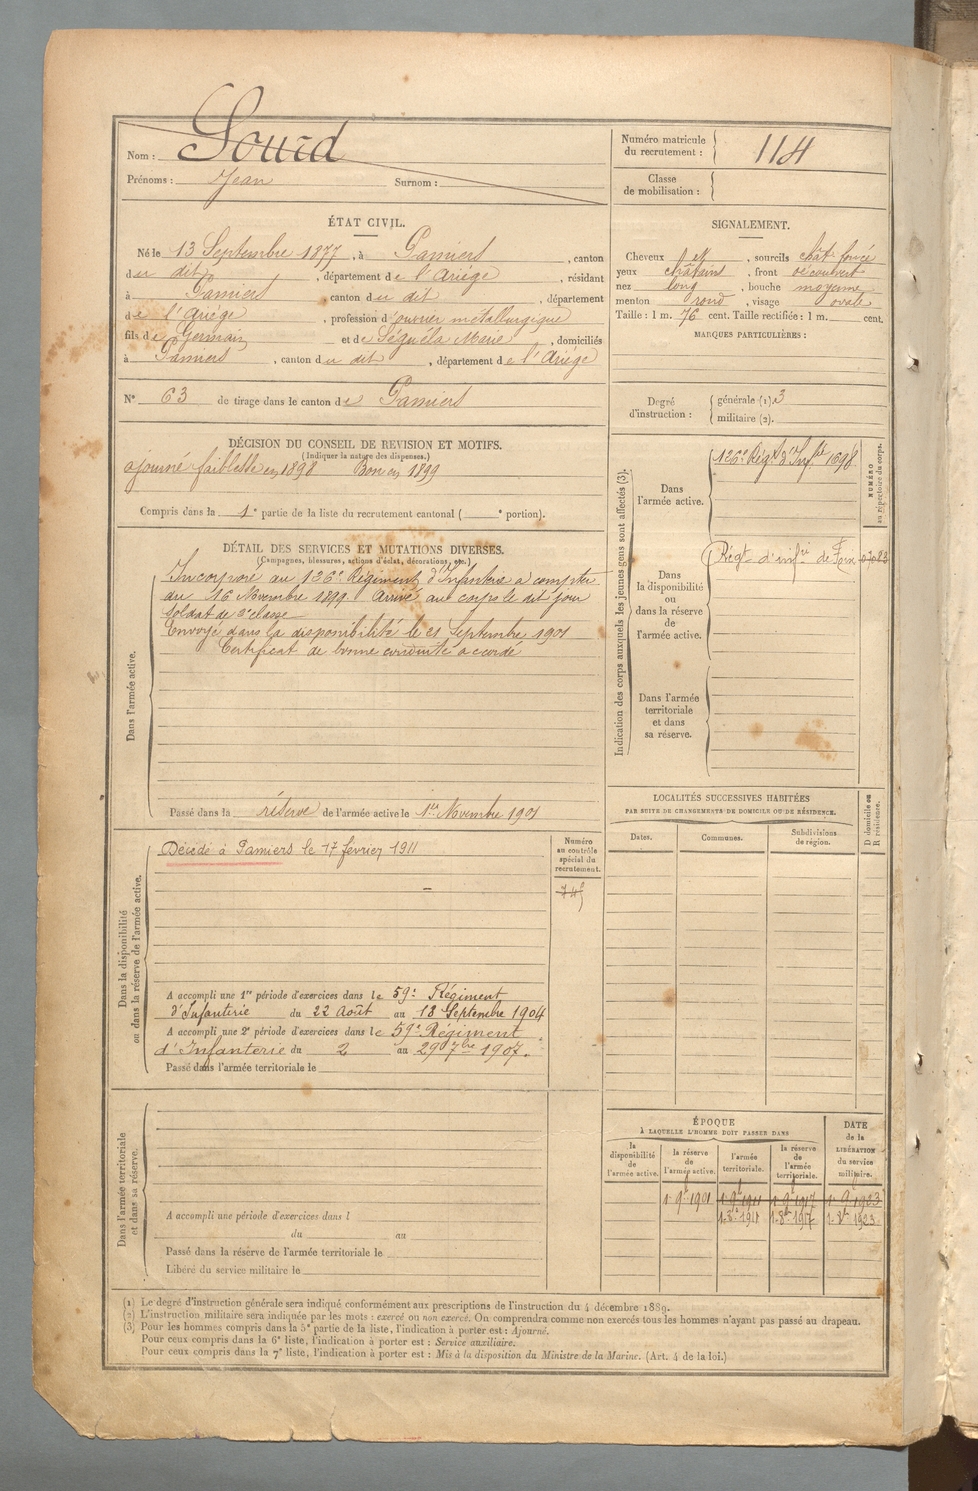 Nom : Sourd
Prénoms : Jean Surnom :
Numéro matricule du recrutement : 114
Classe de mobilisation :
ÉTAT CIVIL.
Né le 13 Septembre 1877, à Pamiers, canton
du dit, département de l'Ariége, résidant
à Pamiers, canton du dit, département
de l'Ariége, profession d'ouvrier metallurgique
fils de Germain et de Séguéla Marie, domiciliés
à Pamiers, canton du dit, département de l'Ariége
N° 63 de tirage dans le canton de Pamiers
SIGNALEMENT.
Cheveux et, sourcils chât. foncé
yeux châtains, front découvert
nez long, bouche moyenne
menton rond, visage ovale
Taille : 1 m. 76 cent. Taille rectifiée : 1 m. cent.
MARQUES PARTICULIÈRES :
Degré d'instruction : générale (1). 3
militaire (2).
DÉCISION DU CONSEIL DE REVISION ET MOTIFS.
(Indiquer la nature des dispenses.)
ajourné faiblesse en 1898 Bon en 1899
Compris dans la 1e partie de la liste du recrutement cantonal ( e portion).
DÉTAIL DES SERVICES ET MUTATIONS DIVERSES.
(Campagnes, blessures, actions d'éclat, décorations, etc.)
Dans l'armée active.
Incorporé au 126e Régiment d'Infanterie a compter
du 16 Novembre 1899 Arrivé au corps le dit jour
soldat de 2e classe
Envoyé dans la disponibilité le 21 Septembre 1901
Certificat de bonne conduite accordé
Passé dans la réserve de l'armée active le 1er Novembre 1901
Indication des corps auxquels les jeunes gens sont affectés (3).
NUMÉRO au répertoire du corps.
Dans l'armée active.
126e Régt d'Infie 1698
Dans la disponibilité ou dans la réserve de l'armée active.
Régt d'infie de 07023
Dans l'armée territoriale et dans sa réserve.
Dans la disponibilité ou dans la réserve de l'armée active.
Décédé à Pamiers le 17 février 1911
Numéro au contrôle spécial du recrutement.
A accompli une 1re période d'exercices dans le 59e Régiment
d'Infanterie du 22 Août au 18 Septembre 1904
A accompli une 2e période d'exercices dans le 59e Régiment
d'Infanterie du 2 au 29 7bre 1907.
Passé dans l'armée territoriale le
LOCALITÉS SUCCESSIVES HABITÉES
PAR SUITE DE CHANGEMENTS DE DOMICILE OU DE RÉSIDENCE.
Dates. Communes. Subdivisions de région.
D domicile ou R résidence.
Dans l'armée territoriale et dans sa réserve.
A accompli une période d'exercices dans l
du au
Passé dans la réserve de l'armée territoriale le
Libéré du service militaire le
ÉPOQUE
À LAQUELLE L'HOMME DOIT PASSER DANS
la disponibilité de l'armée active. la réserve de l'armée active. l'armée territoriale. la réserve de l'armée territoriale.
DATE de la LIBÉRATION du service militaire.
1 9e 1901 1 9e 1911 1 9e 1917 1 9e 1923
(1) Le degré d'instruction générale sera indiqué conformément aux prescriptions de l'instruction du 4 décembre 1889.
(2) L'instruction militaire sera indiquée par les mots : exercé ou non exercé. On comprendra comme non exercés tous les hommes n'ayant pas passé au drapeau.
(3) Pour les hommes compris dans la 5e partie de la liste, l'indication à porter est : Ajourné.
Pour ceux compris dans la 6e liste, l'indication à porter est : Service auxiliaire.
Pour ceux compris dans la 7e liste, l'indication à porter est : Mis à la disposition du Ministre de la Marine. (Art. 4 de la loi.)